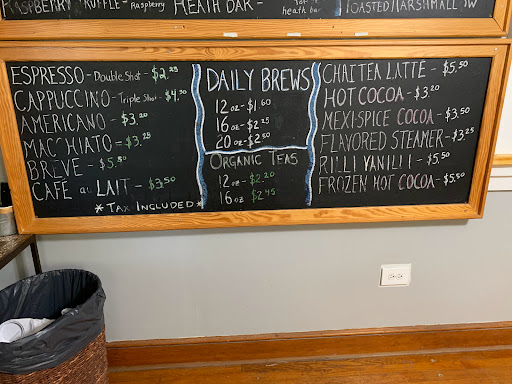 RASPBERRY TRUFFLE - Raspberry
HEATH BAR -
heath bar
TOASTED MARSHMALLOW
ESPRESSO - Double Shot - $2.25
CAPPUCCINO - Triple Shot - $4.
AMERICANO - $3.20
MACCHIATO = $3.25
BREVE - $5.50
CAFÉ au LAIT - $3.50
*TAX INCLUDED*
DAILY BREWS
12 oz - $1.60
16 oz - $2.25
20 oz - $2.80
ORGANIC TEAS
12 oz - $2.20
16 oz $2.45
CHAI TEA LATTE - $5.50
HOT COCOA - $3.20
MEXI-SPICE COCOA - $3.50
FLAVORED STEAMER - $3.25
- $5.50
FROZEN HOT COCOA - $5.50